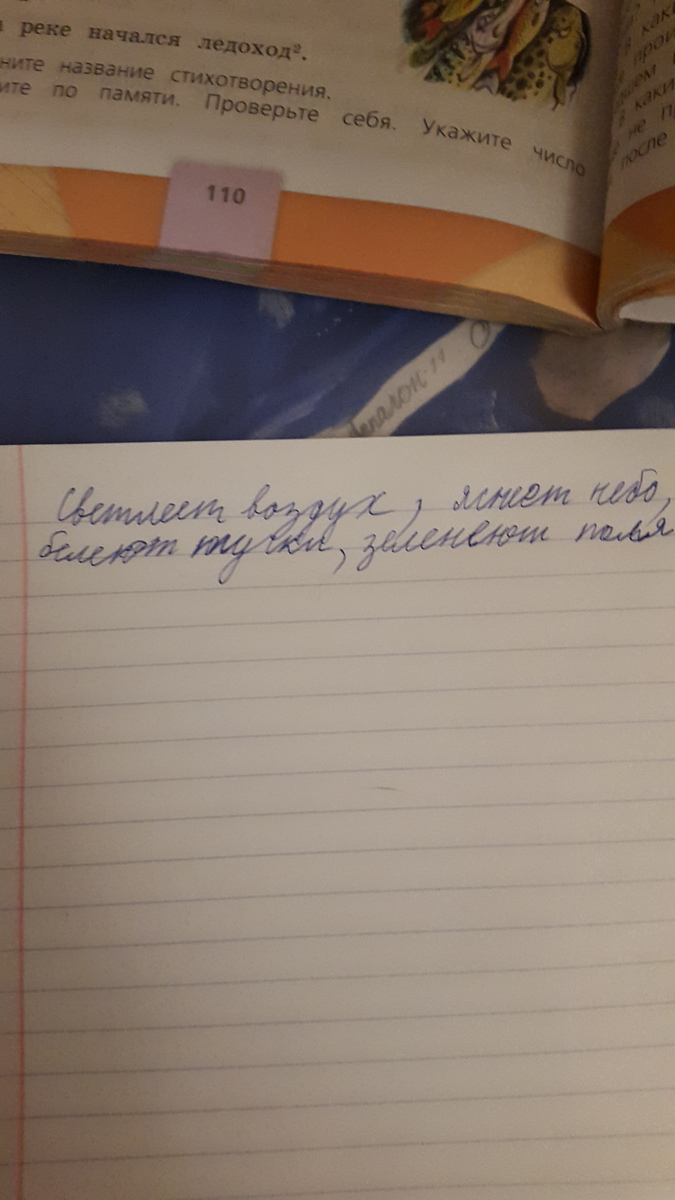 реке начался ледоход².
ните название стихотворения.
ите по памяти. Проверьте себя. Укажите число
110
в каки
прои
в каки
не п
после
Светлеет воздух, яснеет небо,
белеют тучки, зеленеют поля